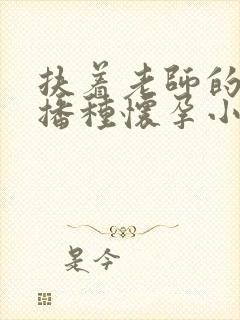 扶着老師的
播種懷孕小
是今